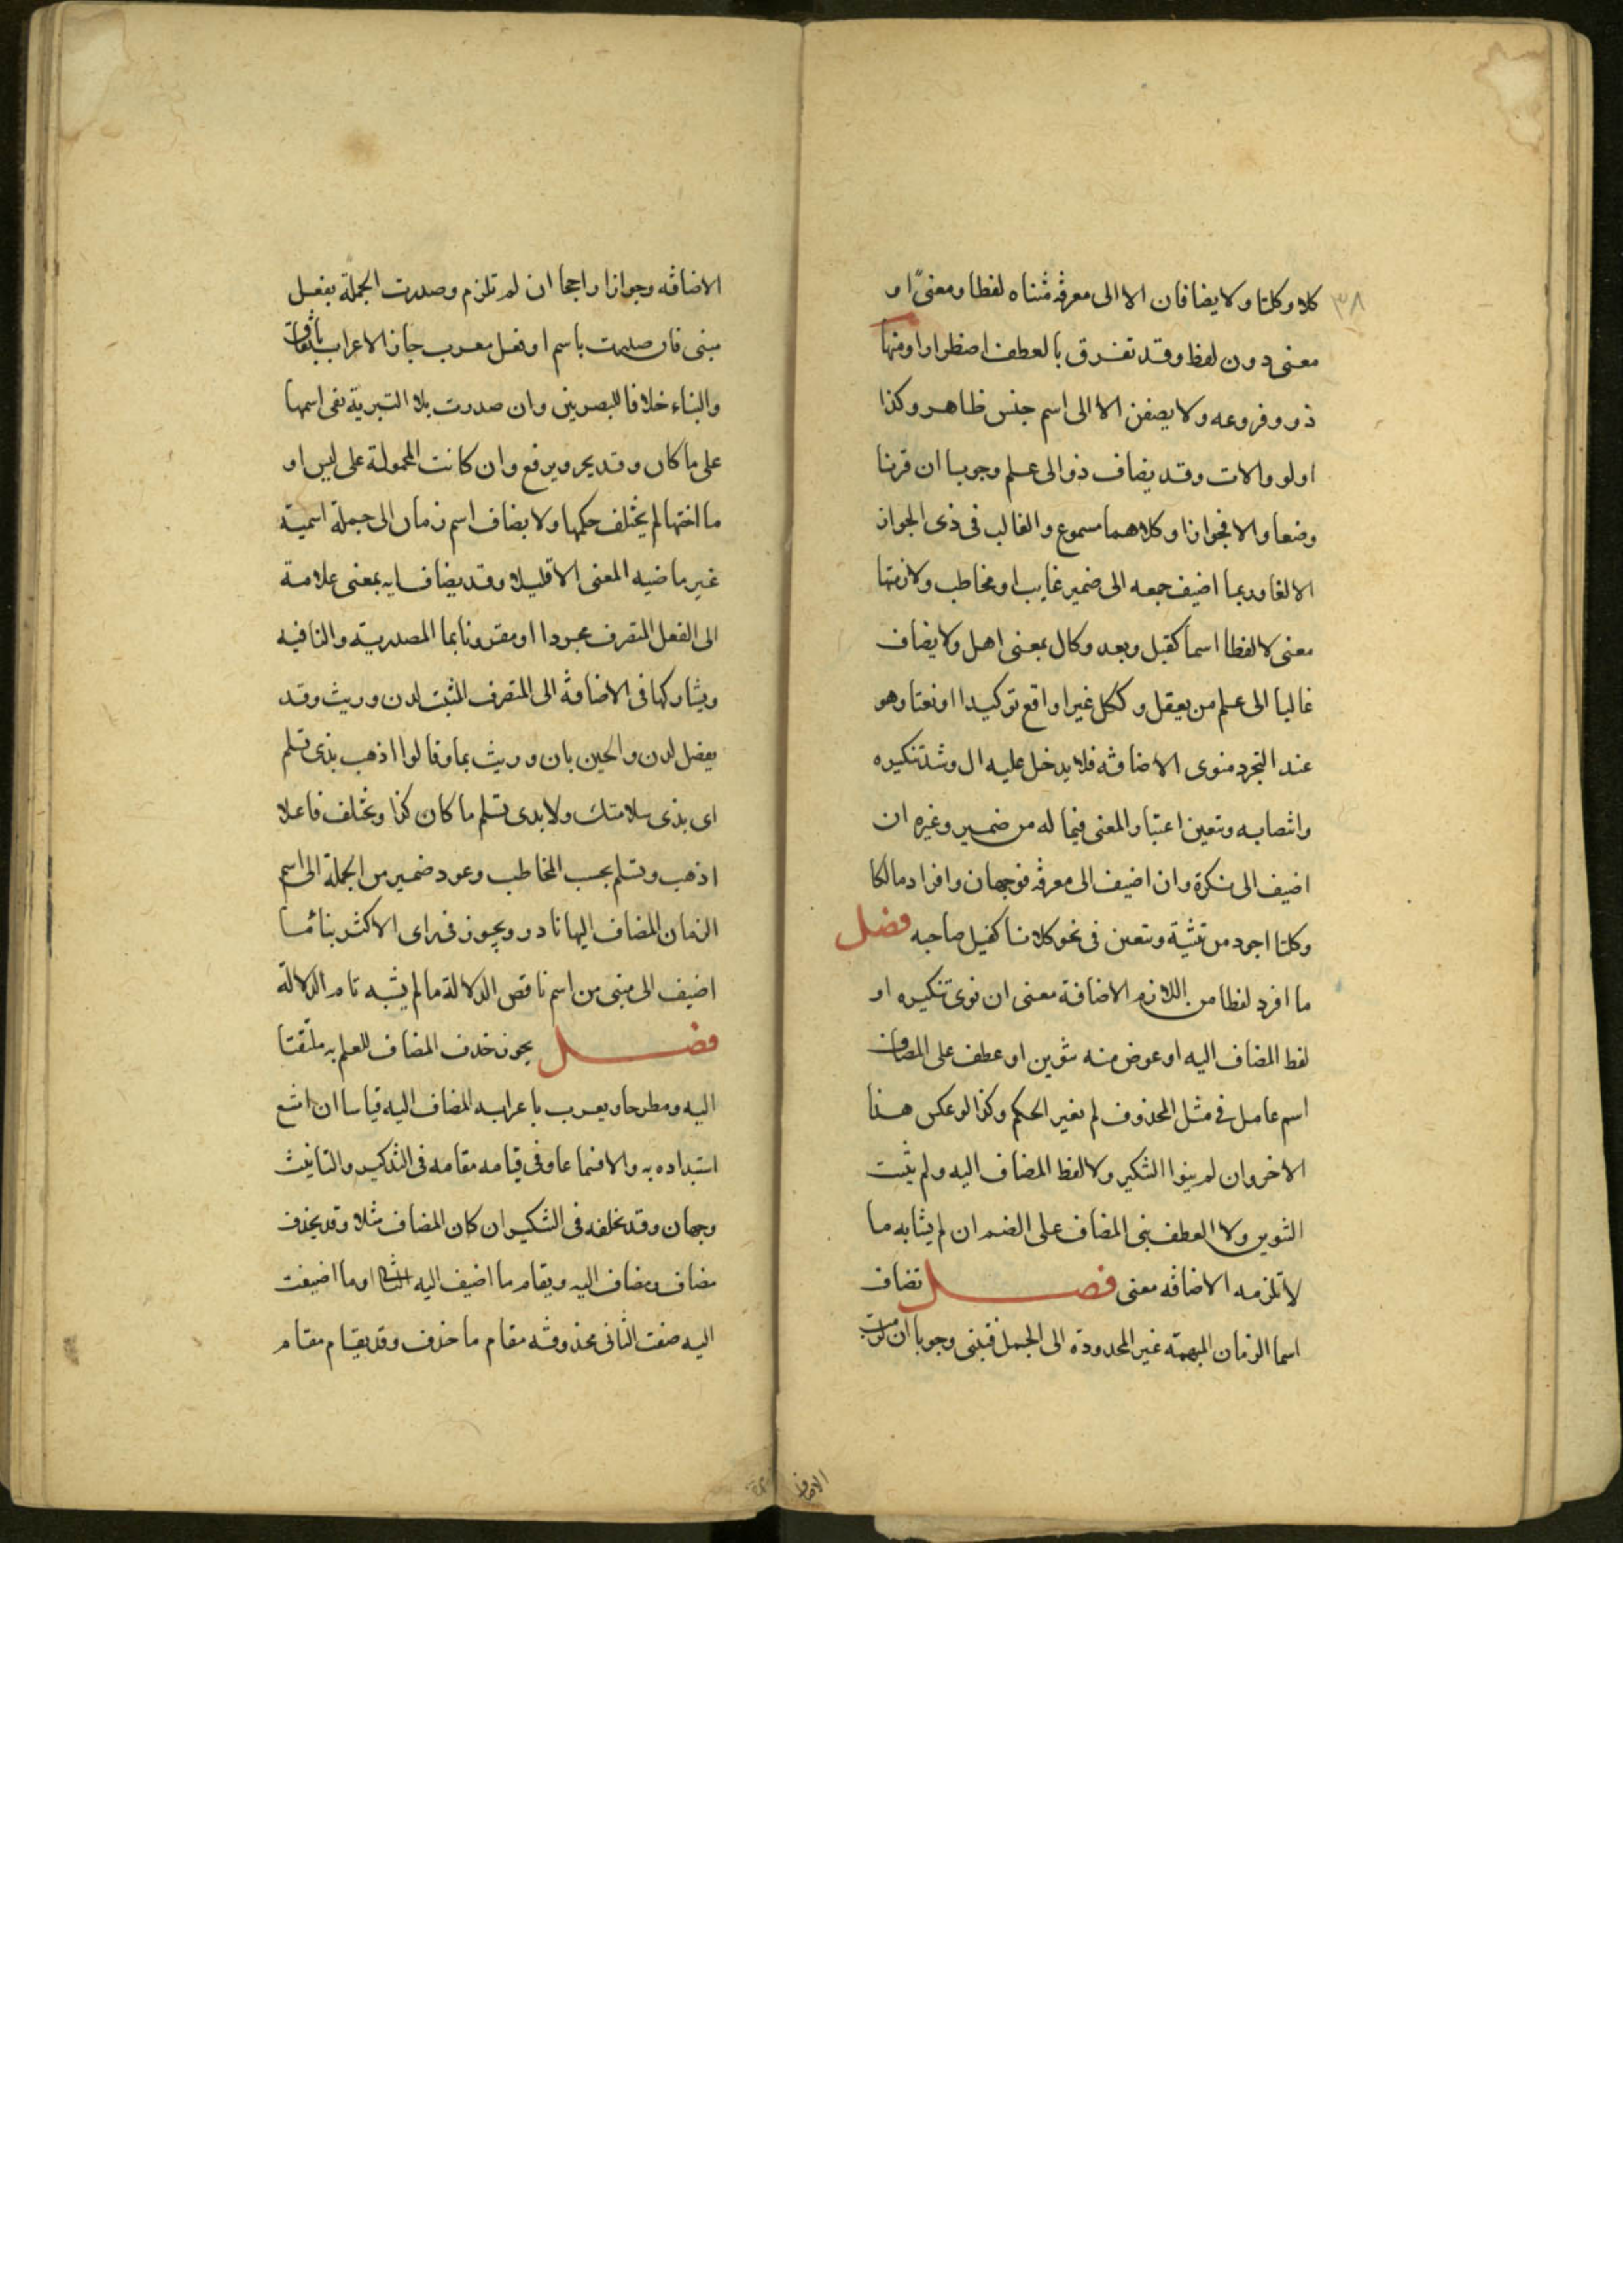 ٣٨
كلا وكلتا ولا يضافان الا الى معرفة مثناه لفظا ومعنىً او
معنى دون لفظ وقد تفرق بالعطف اضطرارا ومنها
ذو وفروعه ولا يضفن الا الى اسم جنس ظاهر وكذا
اولو والات وقد يضاف ذو الى علم وجوبا ان قرنا
وضعا والا فجوازا وكلاهما مسموع والغالب فى ذى الجواز
الالغا وربما اضيف جمعه الى ضمير غايب او مخاطب ولازمتها
معنى لا لفظا اسما كقبل وبعد وكال بمعنى اهل ولا يضاف
غالبا الى علم من يعقل وككل غير واقع توكيدا او نعتا وهو
عند التجرد منوى الاضافة فلا يدخل عليه ال وشذ تنكيره
وانتصابه وتعين اعتبار المعنى فيما له من ضمير وغيره ان
اضيف الى نكرة وان اضيف الى معرفة فوجهان وافراد ما لكلا
وكلتا اجود من تثنية وتعين فى نحو كلانا كفيل صاحبه فصل
ما افرد لفظا من اللازم الاضافة معنى ان نوى تنكيره او
لفظ المضاف اليه او عوض منه تنوين او عطف على المضاف
اسم عامل فى مثل المحذوف لم يغير الحكم وكذا لو عكس هذا
الاخر وان لم ينوا التنكير ولا لفظ المضاف اليه ولم يثبت
التنوين ولا العطف بنى المضاف على الضم ان لم يشابه ما
لا تلزمه الاضافة معنى فصل تضاف
اسما الزمان المبهمة غير المحدودة الى الجمل فتبنى وجوبا ان لزمت
الاضافة
الاضافة وجوازا راجحا ان لم تلزم وصدرت الجملة بفعل
مبنى فان صدرت باسم او فعل معرب جاز الاعراب باتفاق
والبناء خلافا للبصريين وان صدرت بلا التبرية بقى اسمها
على ما كان وقد يجر ويرفع وان كانت المحمولة على ليس او
ما اختها لم يختلف حكمها ولا يضاف اسم زمان الى جملة اسمية
غير ماضيه المعنى الا قليلا وقد يضاف ايه بمعنى علامة
الى الفعل المتصرف مجردا او مقرونا بما المصدرية والنافيه
ويشاركها فى الاضافة الى المتصرف المثبت لدن وريث وقد
يفصل لدن والحين بان وريث بما وقالوا اذهب بذى تسلم
اى بذى سلامتك ولا بذى تسلم ما كان كذا ويختلف فاعلا
اذهب وتسلم بحسب المخاطب وعود ضمير من الجملة الى اسم
الزمان المضاف اليها نادر ويجوز فى راى الاكثر بناء ما
اضيف الى مبنى من اسم ناقص الدلالة ما لم يشبه تام الدلالة
فصل يجوز حذف المضاف للعلم به ملتفتا
اليه ومطرحا ويعرب باعرابه المضاف اليه قياسا ان امتنع
استبداده به والا فسماعا وفى قيامه مقامه فى التذكير والتانيث
وجهان وقد يخلفه فى التنكير ان كان المضاف مثلا وقد يحذف
مضاف ومضاف اليه ويقام ما اضيف اليه الثانى او ما اضيفت
اليه صفت الثانى محذوفه مقام ما حذف وقد يقام مقام